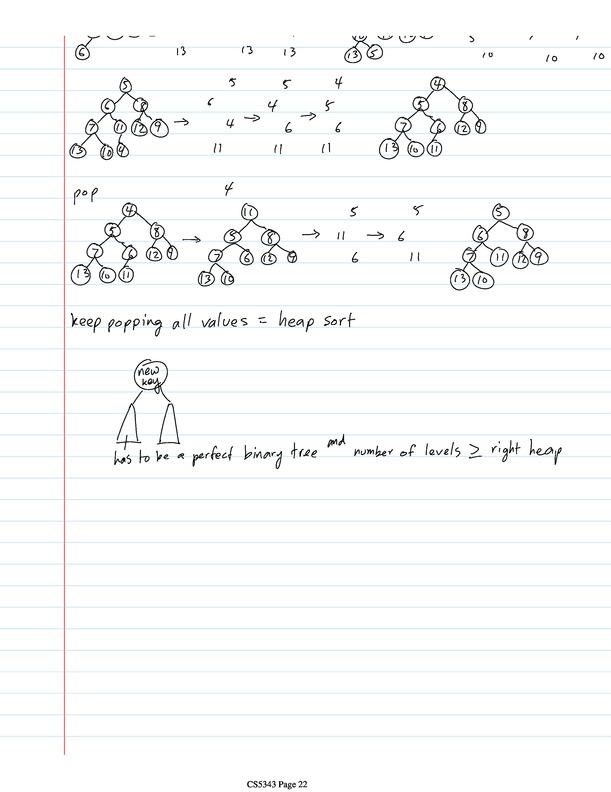 6 13 13 13 13 5 10 10 10
5 5 5 4 4
6 8 6 4 5 5 8
7 11 12 9 → 4 → 6 → 6 7 6 12 9
13 10 4 11 11 11 13 10 11
pop 4
4 11 5 5 5
5 8 → 5 8 → 11 → 6 6 8
7 6 12 9 7 6 12 9 6 11 7 11 12 9
13 10 11 13 10 13 10
keep popping all values = heap sort
new
key
has to be a perfect binary tree and number of levels ≥ right heap
CS5343 Page 22